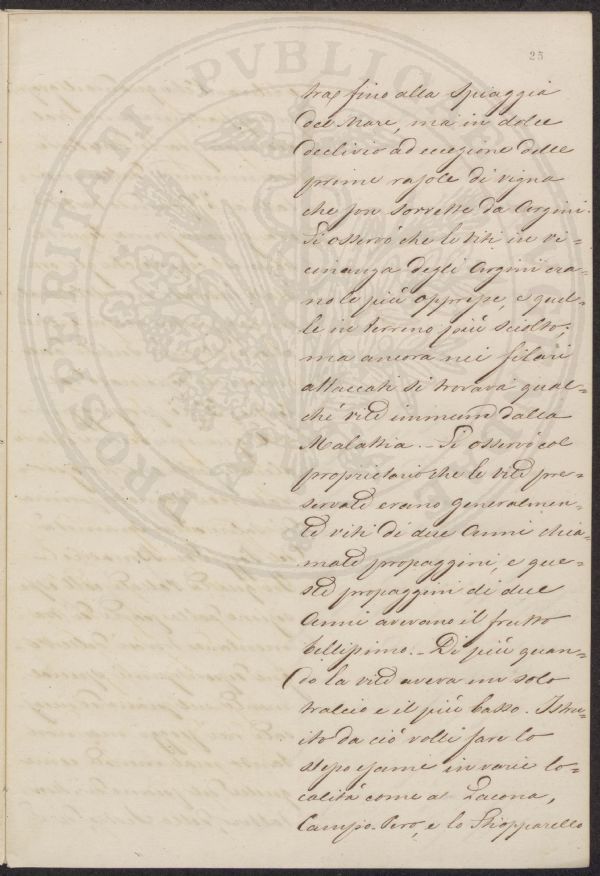 25
fino alla spiaggia
del Mare, ma in dolce
declivio ad eccezione delle
prime rasole di vigna
che son sorrette da Argini.
Si osservò che le viti in vi=
cinanza degli Argini era=
no le più oppresse, e quel=
le in terreno più sciolto;
ma ancora nei filari
attaccati si trovava qual=
ché vite immune dalla
Malattia. Si osservò col
proprietario che le viti pre=
servate erano generalmen=
te viti di due Anni chia=
mate propaggini, e que=
ste propaggini di due
Anni avevano il frutto
bellissimo. Di più quan=
do la vite aveva un solo
tralcio e il più basso. Istru=
ito da ciò volli fare lo
stesso esame in varie lo=
calità come a Lacona,
Campo-Pero, e lo Schiopparello
PROSPERITATI PVBLICAE